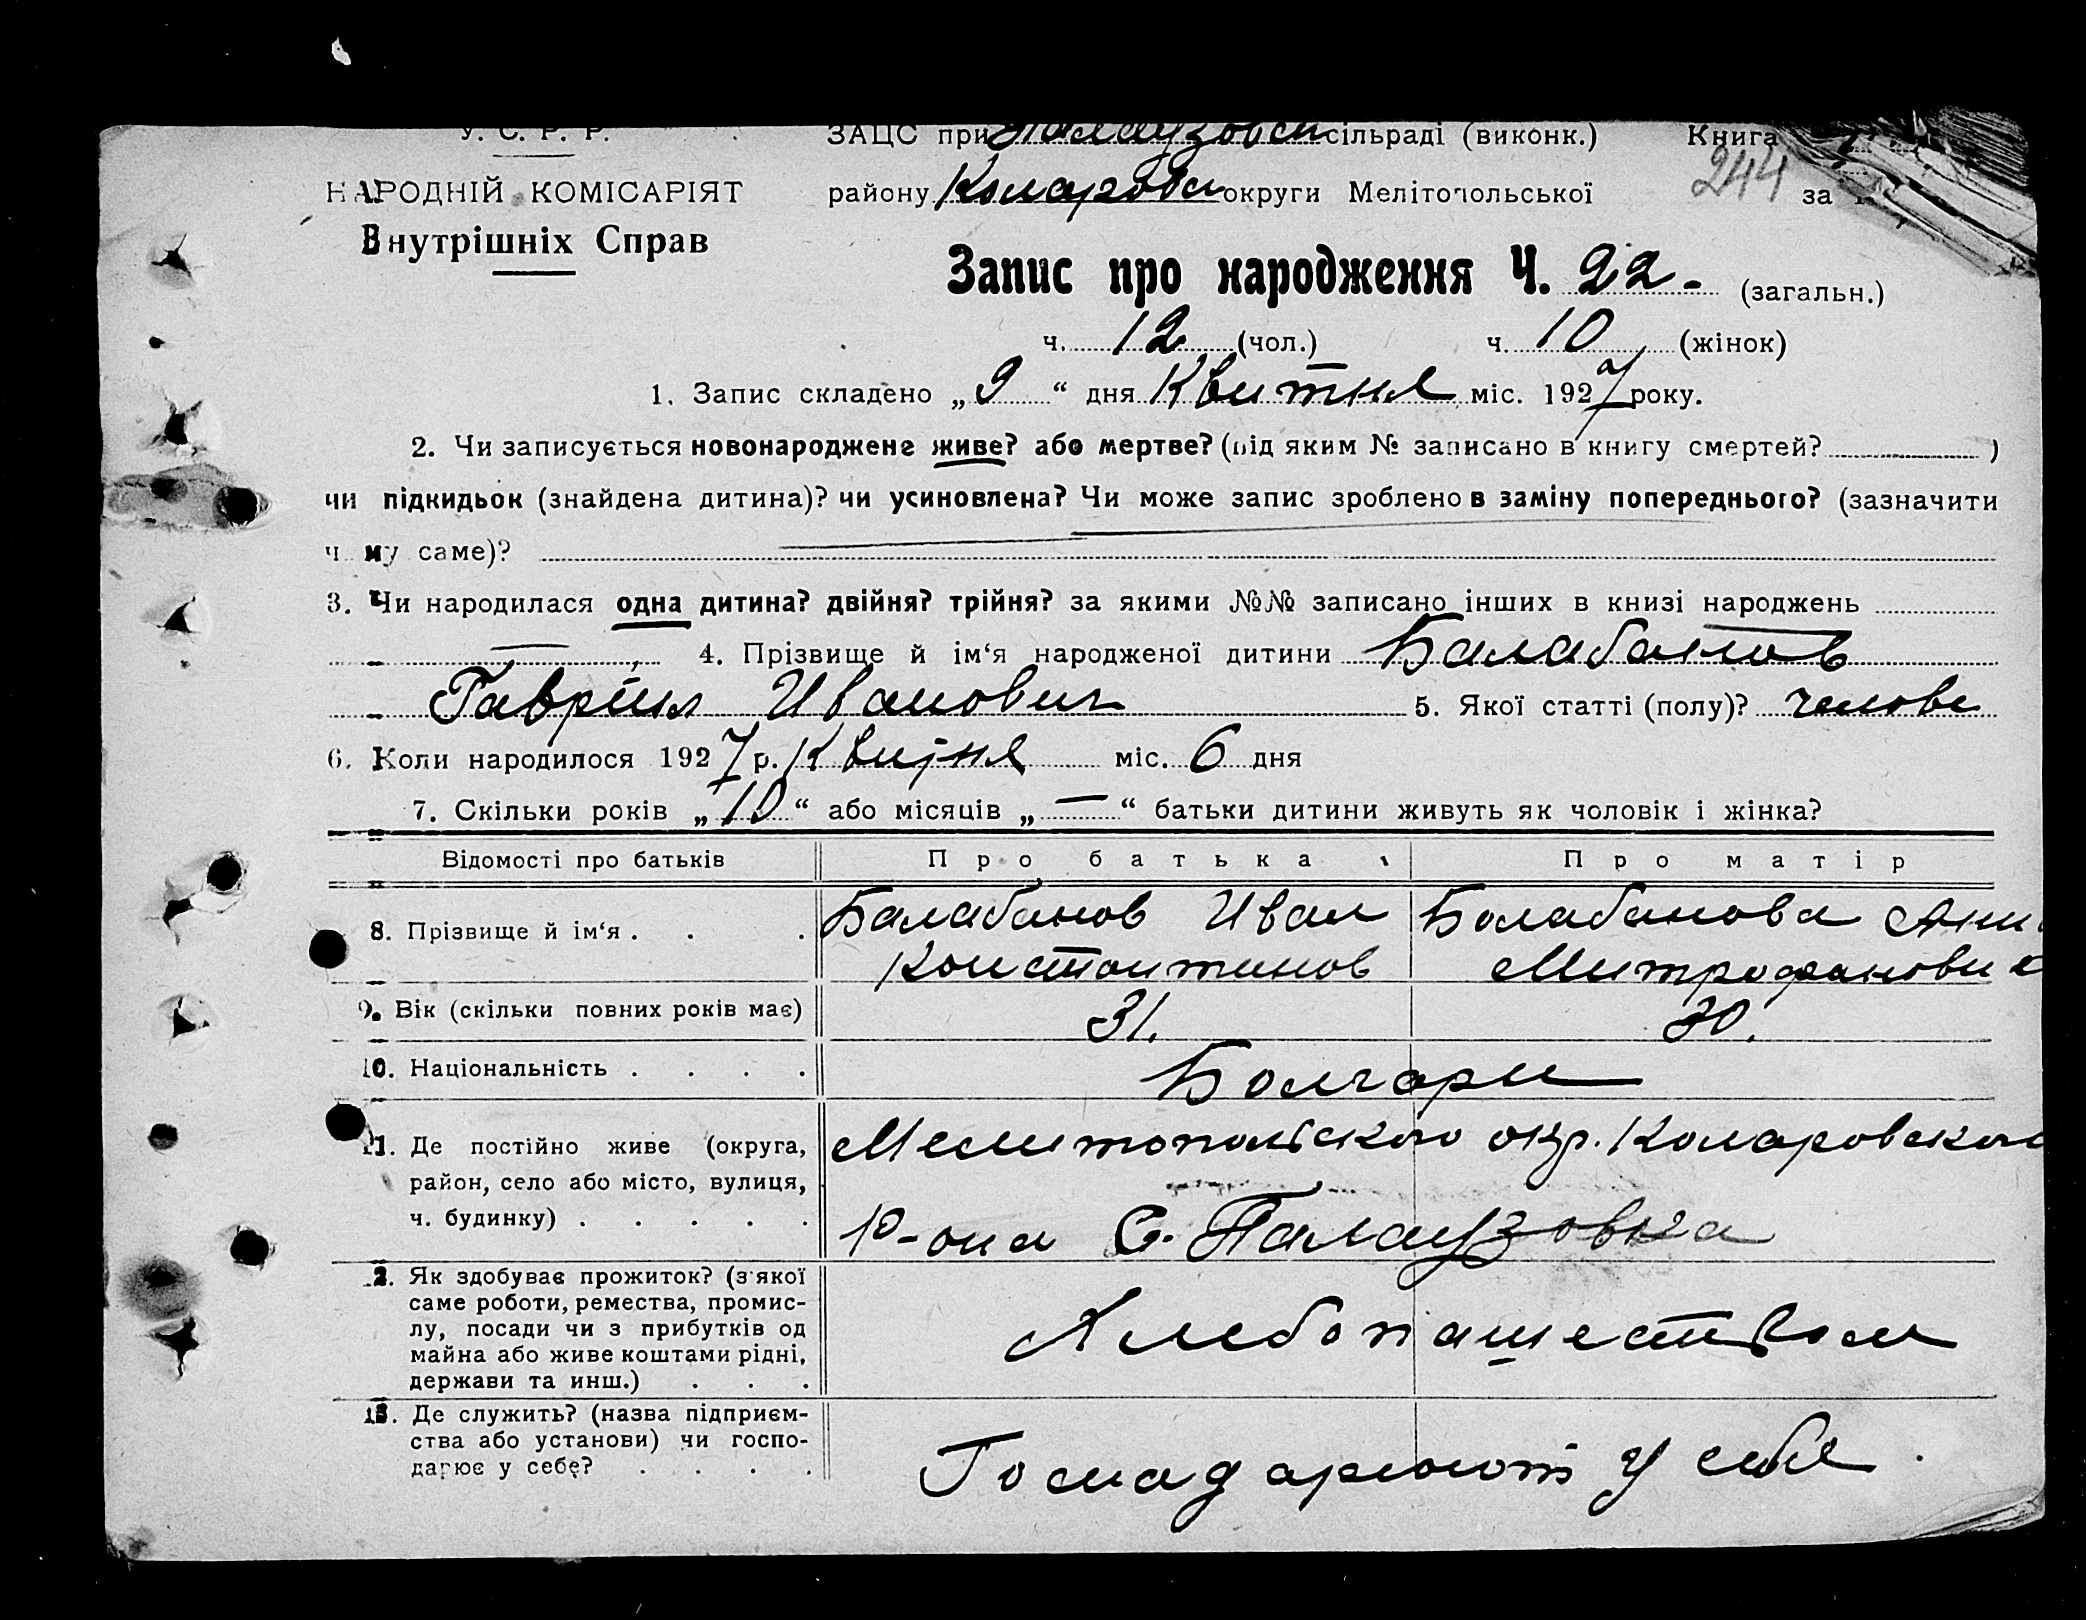 У. С. Р. Р. ЗАЦС при Палаузовсп сільраді (виконк.) Книга
244
НАРОДНІЙ КОМІСАРІЯТ району Коларовсп округи Мелітопольської за
Внутрішніх Справ
Запис про народження Ч. 22 - (загальн.)
ч. 12 (чол.) ч. 10 (жінок)
1. Запис складено „ 9 “ дня Квитня міс. 1927 року.
2. Чи записується новонароджене живе? або мертве? (під яким № записано в книгу смертей? )
чи підкидьок (знайдена дитина)? чи усиновлена? Чи може запис зроблено в заміну попереднього? (зазначити
чому саме)?
3. Чи народилася одна дитина? двійня? трійня? за якими №№ записано інших в книзі народжень
— 4. Прізвище й ім‘я народженої дитини Балабанов
Гавріил Иванович 5. Якої статті (полу)? челове
6. Коли народилося 1927 р. Квитня міс. 6 дня
7. Скільки років „ 10 “ або місяців „ — “ батьки дитини живуть як чоловік і жінка?
Відомості про батьків Про батька Про матір
8. Прізвище й ім‘я . . . Балабанов Иван Болабанова Анн
Константинов Митрофанови
9. Вік (скільки повних років має) 31. 30.
10. Національність . . . . Болгари
11. Де постійно живе (округа, Мелитопольского окр. Коларовского
район, село або місто, вулиця,
ч. будинку) . . . . . р-она С. Палаузовка
12. Як здобуває прожиток? (з якої
саме роботи, ремества, промис-
лу, посади чи з прибутків од Хлебопашеством
майна або живе коштами рідні,
держави та инш.) . . .
13. Де служить? (назва підприєм-
ства або установи) чи госпо- Госпадарюют у себя.
дарює у себе? . . . .